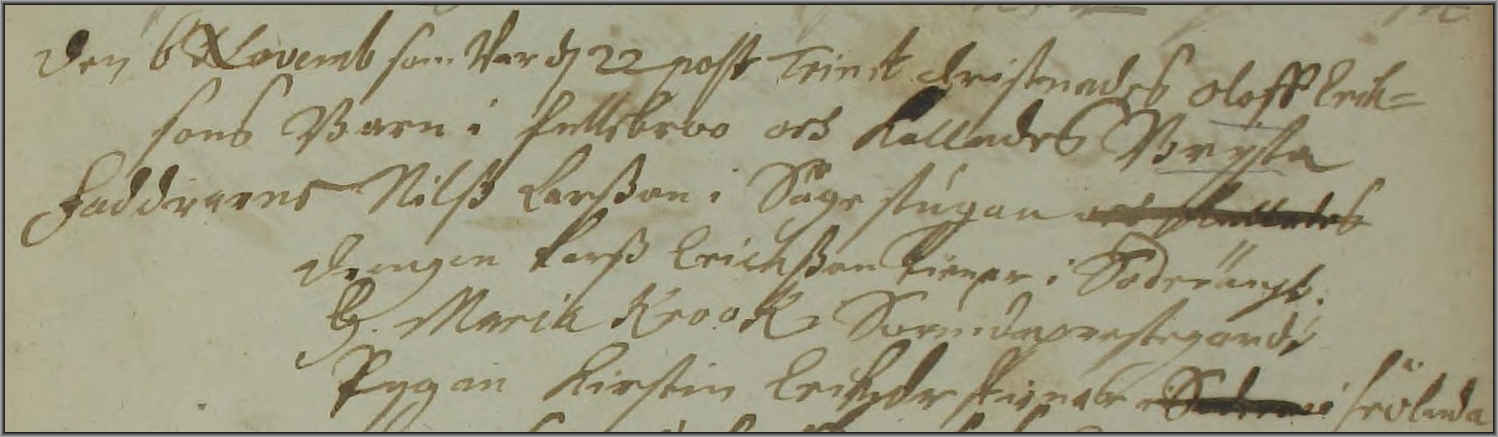 Den 6 Novemb som var d 22 post Trinit christnades Oloff Erich=
sons Barn i Fullbroo och kallades Brijta
Faddrarne Nilß Larßon i Sågestugan
Drengen Larß Erichßon tienar i Söderängh.
H. Maria Krook i Sorundaprestegård.
Pygan Kirstin Erichzdr tienar i Frölunda